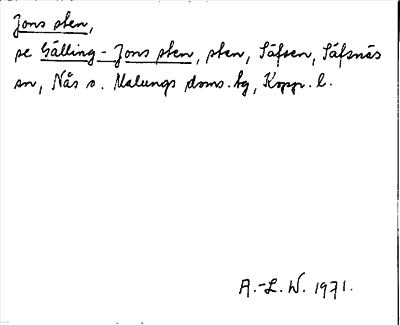 Jons sten,
se Gälling-Jons sten, sten, Säfsen, Säfsnäs
sn, Nås o. Malungs doms. tg, Kopp. l.
A.-L. W. 1971.